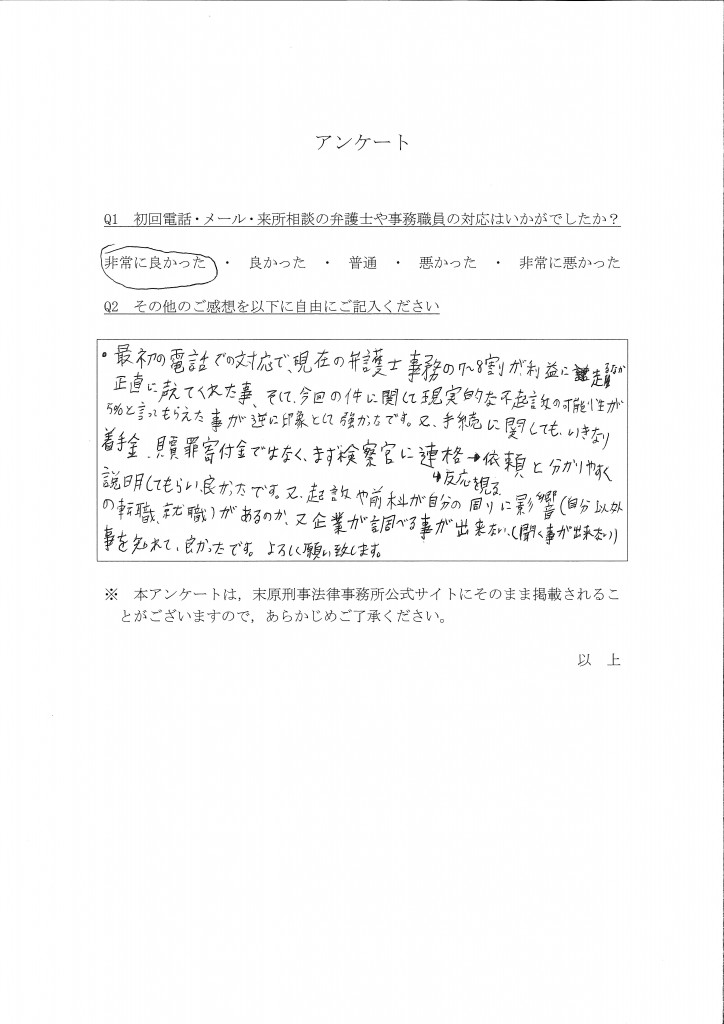 アンケート
Q1 初回電話・メール・来所相談の弁護士や事務職員の対応はいかがでしたか？
非常に良かった ・ 良かった ・ 普通 ・ 悪かった ・ 非常に悪かった
Q2 その他のご感想を以下に自由にご記入ください
・最初の電話での対応で、現在の弁護士事務の7〜8割が利益に走る
正直に教えてくれた事、そして、今回の件に関して現実的な不起訴の可能性が
5%と言ってもらえた事が逆に印象として強かったです。又、手続に関しても、いきなり
着手金、贖罪寄付金ではなく、まず検察官に連絡→依頼と分かりやすく
↳反応を視る
説明してもらい、良かったです。又、起訴や前科が自分の周りに影響(自分以外
の転職、就職)があるのか、又企業が調べる事が出来ない、(聞く事が出来ない)
事を知れて、良かったです。よろしく願い致します。
※ 本アンケートは，末原刑事法律事務所公式サイトにそのまま掲載されるこ
とがございますので，あらかじめご了承ください。
以 上